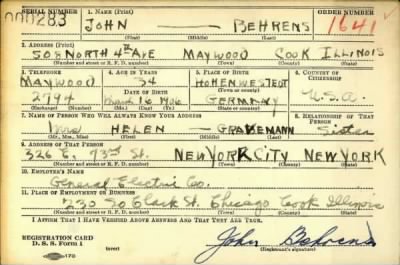 SERIAL NUMBER 1. NAME (Print) ORDER NUMBER
000283 JOHN — BEHRENS 1641
(First) (Middle) (Last)
2. ADDRESS (Print)
508 NORTH 4th AVE MAYWOOD COOK ILLINOIS
(Number and street or R. F. D. number) (Town) (County) (State)
3. TELEPHONE 4. AGE IN YEARS 5. PLACE OF BIRTH 6. COUNTRY OF CITIZENSHIP
MAYWOOD 34 HOHENWESTEDT
(Town or county)
2744 March 16 1906 GERMANY U.S.A.
(Exchange) (Number) (Mo.) (Day) (Yr.) (State or country)
7. NAME OF PERSON WHO WILL ALWAYS KNOW YOUR ADDRESS 8. RELATIONSHIP OF THAT PERSON
Mrs HELEN — Sister
(Mr., Mrs., Miss) (First) (Middle) (Last)
9. ADDRESS OF THAT PERSON
326 E. St. NEW YORK CITY NEW YORK
(Number and street or R. F. D. number) (Town) (County) (State)
10. EMPLOYER'S NAME
General Electric Co.
11. PLACE OF EMPLOYMENT OR BUSINESS
230 So Clark St. Chicago Cook Illinois
(Number and street or R. F. D. number) (Town) (County) (State)
I AFFIRM THAT I HAVE VERIFIED ABOVE ANSWERS AND THAT THEY ARE TRUE.
REGISTRATION CARD
D. S. S. Form 1 (over) John Behrens
(Registrant's signature)